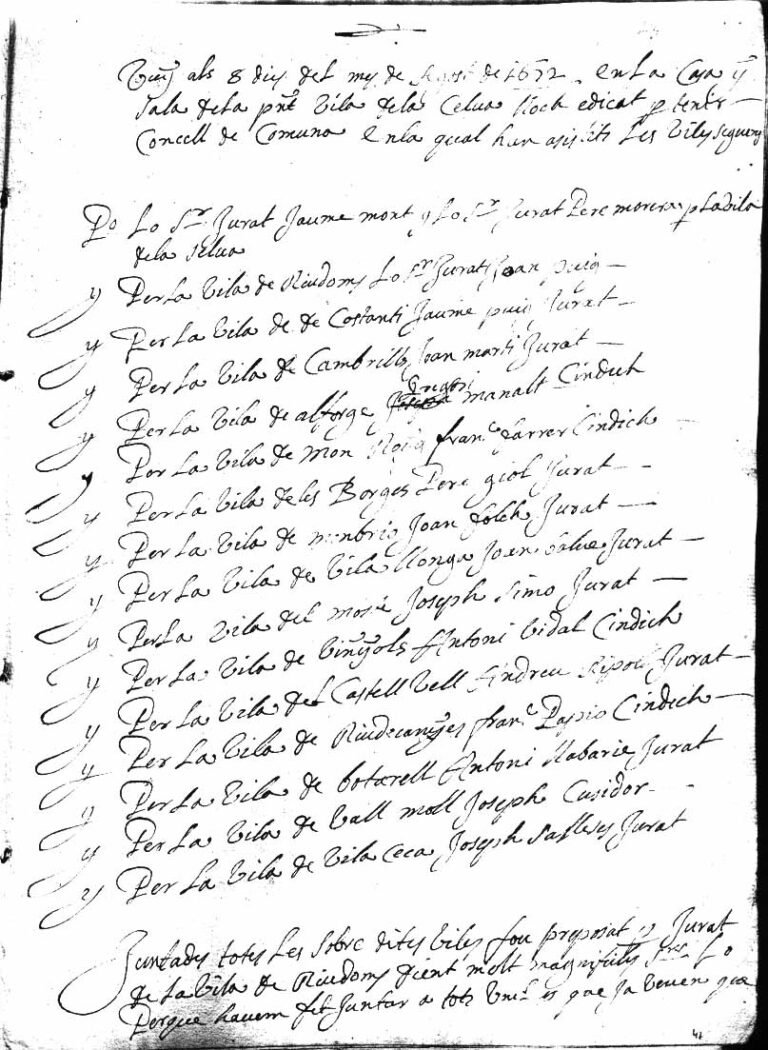 Vuy als 8 dies del mes de Agost de 1672 . en la Casa y
sala dela pnt Vila dela Celva lloch edicat p tenir
Concell de Comuna en la qual han asistits les viles seguens
Po Lo Sr Jurat Jaume mont y Lo Sr Jurat Pere morera p la vila
dela selva
y Per La Vila de Riudoms Lo Sr Jurat Joan puig
y Per La Vila de de Costanti Jaume puig Jurat
y Per La Vila de Cambrills Joan marti Jurat
y Per La Vila de alforge Gregori manalt Cindich
y Per La Vila de Mon Roig franc farrer Cindich
y Per La Vila deles Borges Pere giol Jurat
y Per La Vila de monbrio Joan folch Jurat
y Per La Vila de Vila llonga Joan Jurat
y Per La Vila del Joseph simo Jurat
y Per La Vila de Vinyols Antoni Vidal Cindich
y Per La Vila del Castell Vell Andreu Ripoll Jurat
y Per La Vila de Riudecanyes franc Papio Cindich
y Per La Vila de botarell Antoni Nabarie Jurat
y Per La Vila de Vall moll Joseph Cusidor
y Per La Vila de Vila Ceca Joseph Salleses Jurat
Juntades totes Les Sobre dites Viles fou proposat p Jurat
de La Vila de Riudoms dient molt magnifichs Srs Lo
Perque havem fet Juntar a tots es que ja veuen que